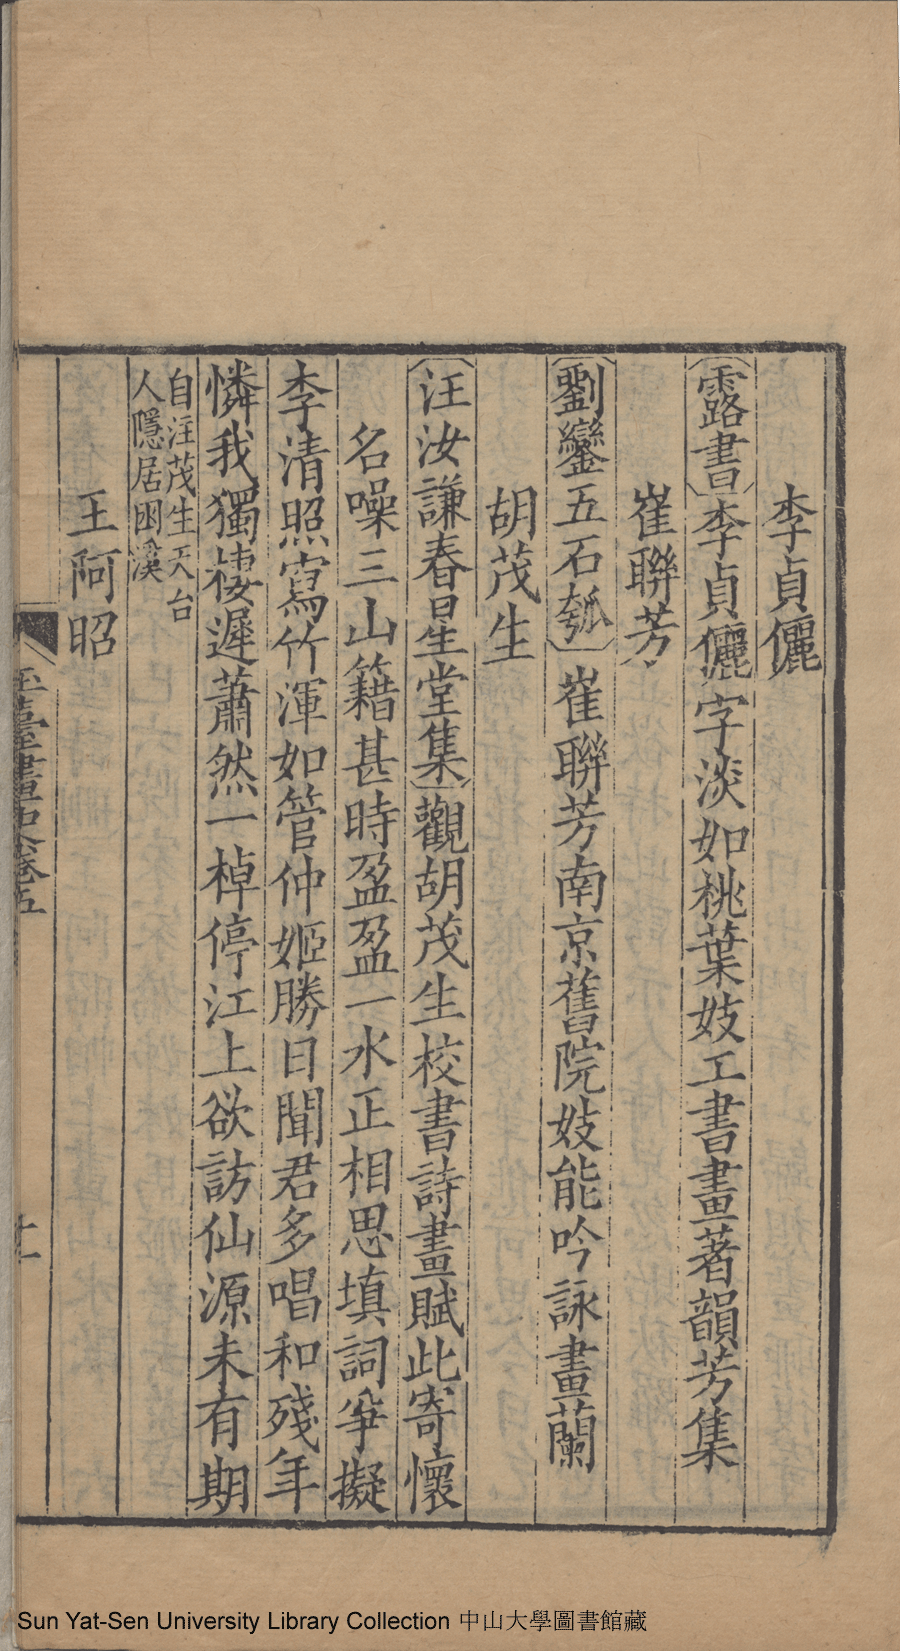 李貞儷
露書李貞儷字淡如桃葉妓工書畫著韻芳集
崔聯芳
劉鑾五石瓠崔聯芳南京舊院妓能吟詠畫蘭
胡茂生
汪汝謙春星堂集觀胡茂生校書詩畫賦此寄懷
名噪三山籍甚時盈盈一水正相思填詞爭擬
李清照寫竹渾如管仲姬勝日聞君多唱和殘年
憐我獨棲遲蕭然一棹停江上欲訪仙源未有期
自注茂生天台
人隱居困溪
王阿昭
玉臺畫史卷五
十一
Sun Yat-Sen University Library Collection 中山大學圖書館藏